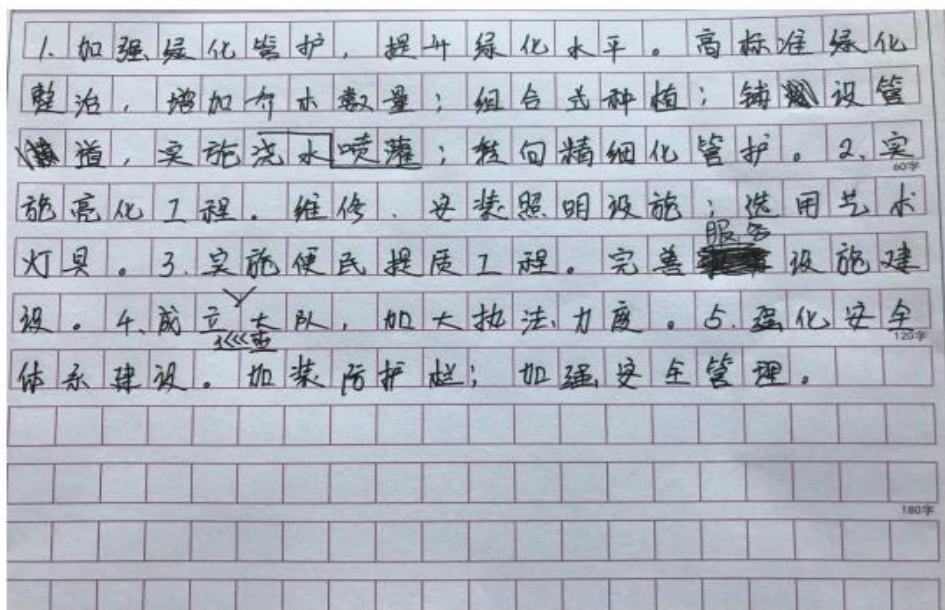 1. 加强绿化管护，提升绿化水平。高标准绿化
整治，增加乔木数量；组合式种植；铺设管
道，实施浇水喷灌；转向精细化管护。2. 实
60字
施亮化工程。维修、安装照明设施；选用艺术
灯具。3. 实施便民提质工程。完善服务设施建
设。4. 成立大队，加大执法力度。5. 强化安全
120字
体系建设。加装防护栏；加强安全管理。
180字